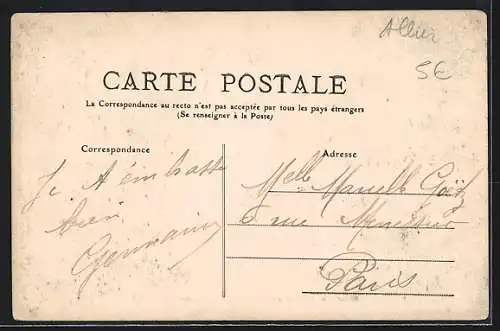 Allier
5€
CARTE POSTALE
La Correspondance au recto n'est pas acceptée par tous les pays étrangers
(Se renseigner à la Poste)
Correspondance
Adresse
Je t'embrasse
bien
Germaine
Melle Marcelle
rue
Paris